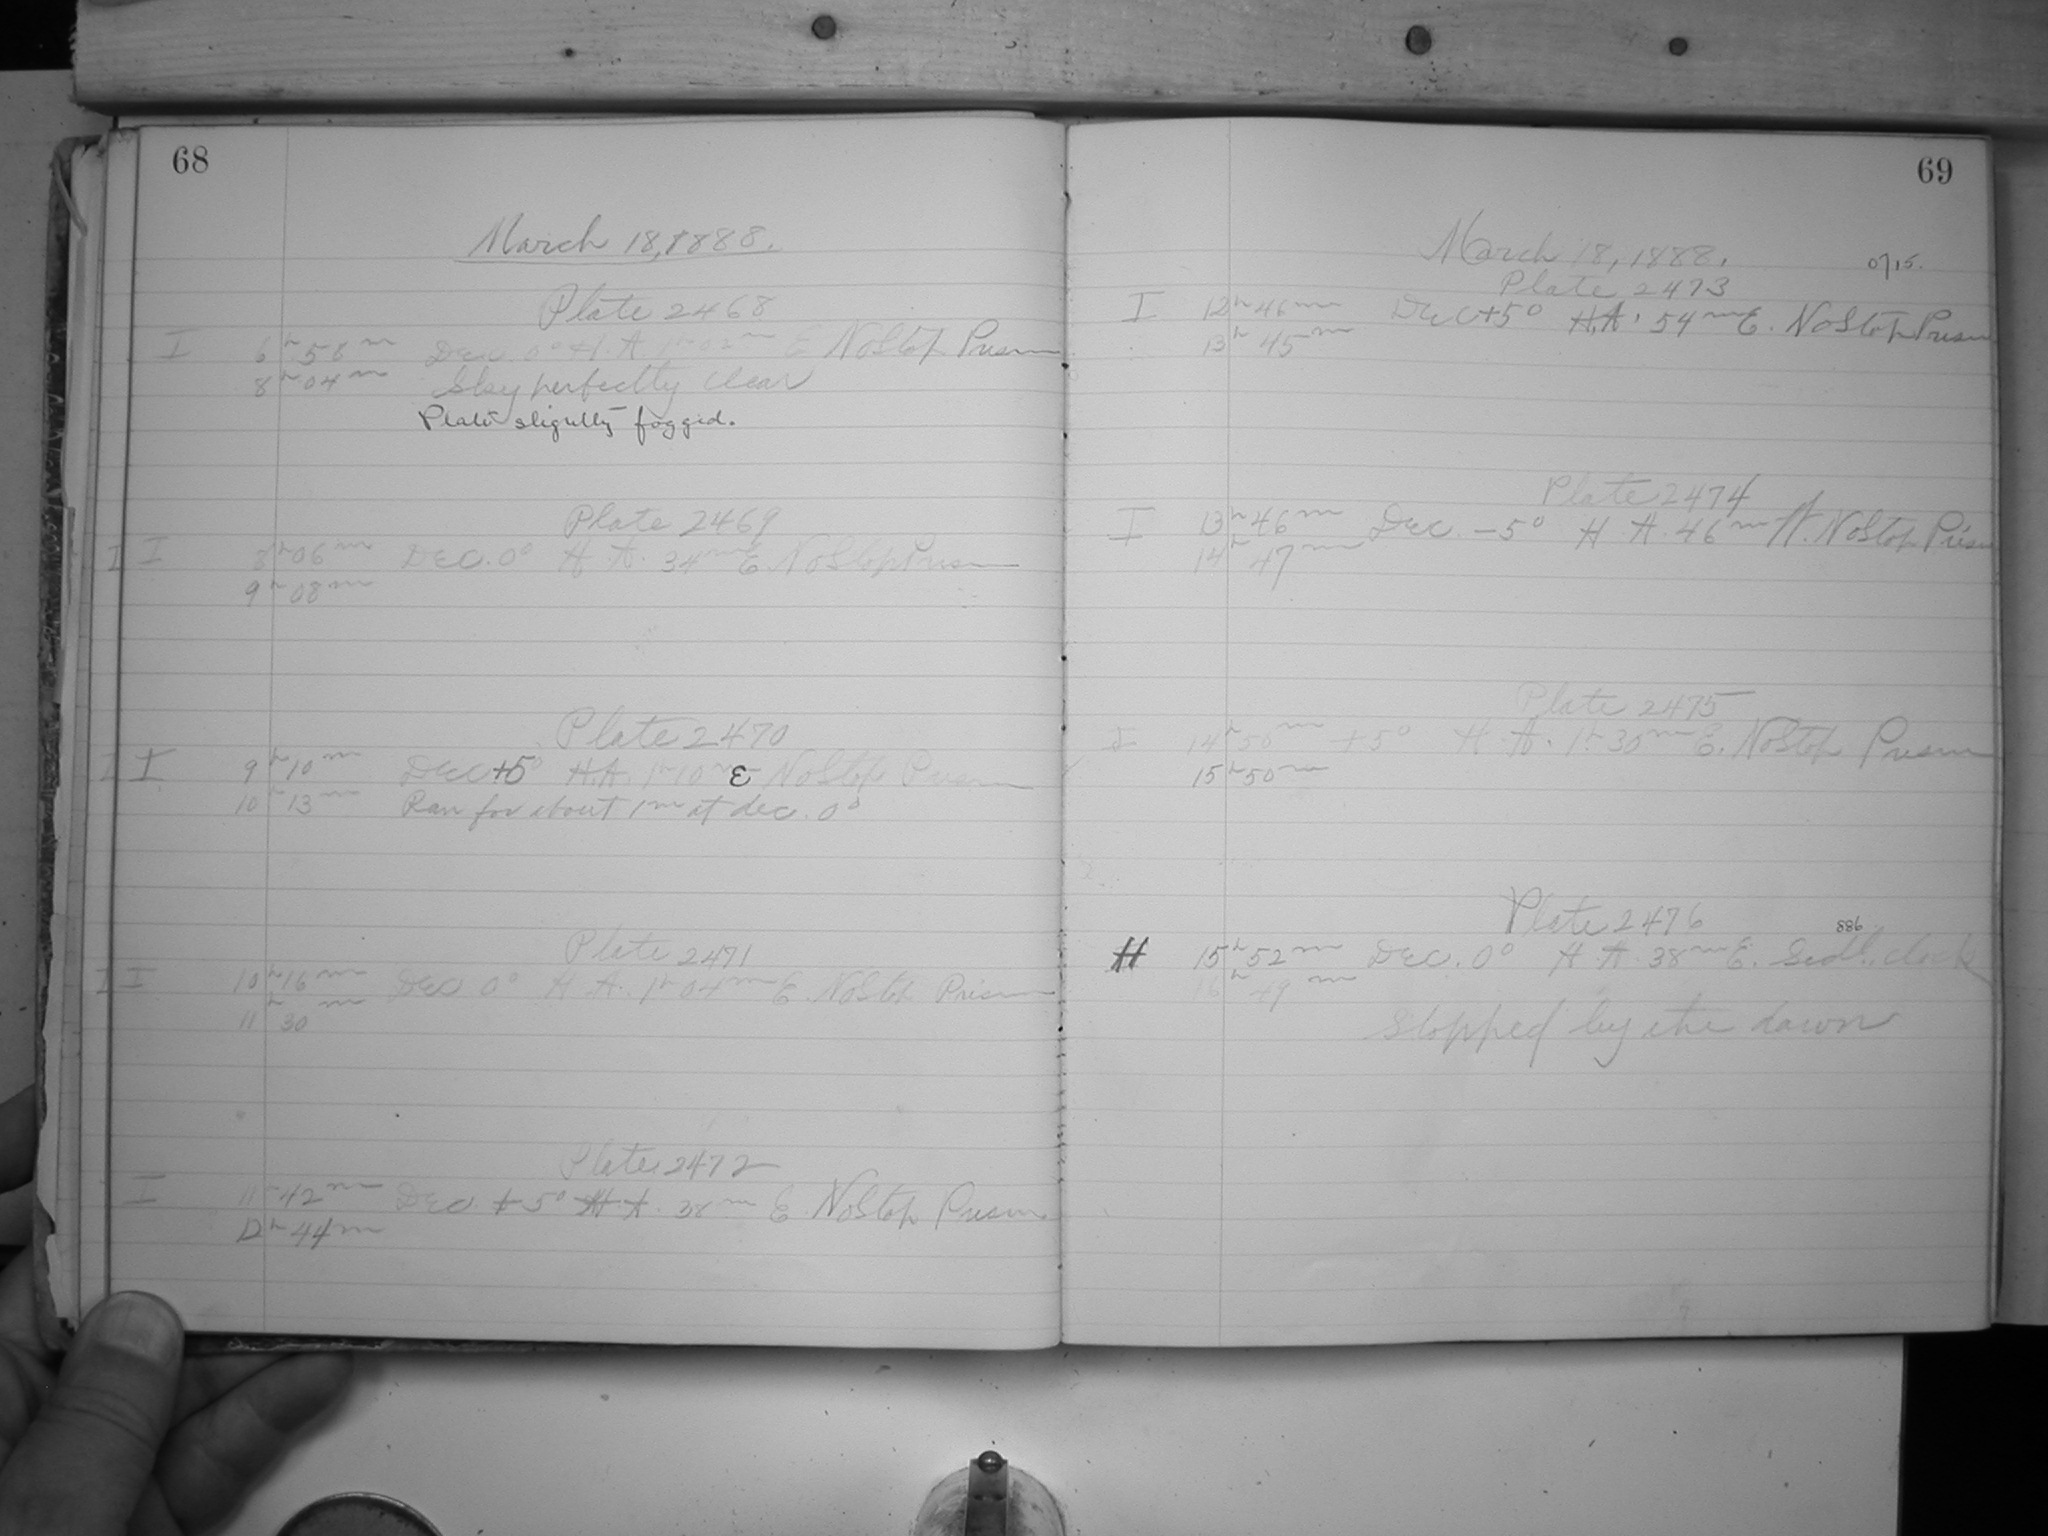 68
March 18, 1888.
Plate 2468
I 6h 58m Dec. 0° H.A. 1h 02m E No Stop Prism
8h 04m Sky perfectly clear
Plate slightly fogged.
Plate 2469
I I 8h 06m Dec. 0° H.A. 34m E No Stop Prism
9h 08m
Plate 2470
I I 9h 10m Dec +5° H.A. 1h 10m E No Stop Prism
10h 13m Ran for about 1m at dec. 0°
Plate 2471
I I 10h 16m Dec 0° H.A. 1h 04m E. No Stop Prism
11h 30m
Plate 2472
I 11h 42m Dec. +5° H.A. 38m E. No Stop Prism
12h 44m
69
March 18, 1888.
Plate 2473
I 12h 46m Dec +5° H.A. 54m E. No Stop Prism
13h 45m
Plate 2474
I 13h 46m Dec. -5° H.A. 46m W. No Stop Prism
14h 47m
Plate 2475
I 14h 50m +5° H.A. 1h 30m E. No Stop Prism
15h 50m
Plate 2476
886
H 15h 52m Dec. 0° H.A. 38m E. Sidl. clock
16h 49m
Stopped by the dawn